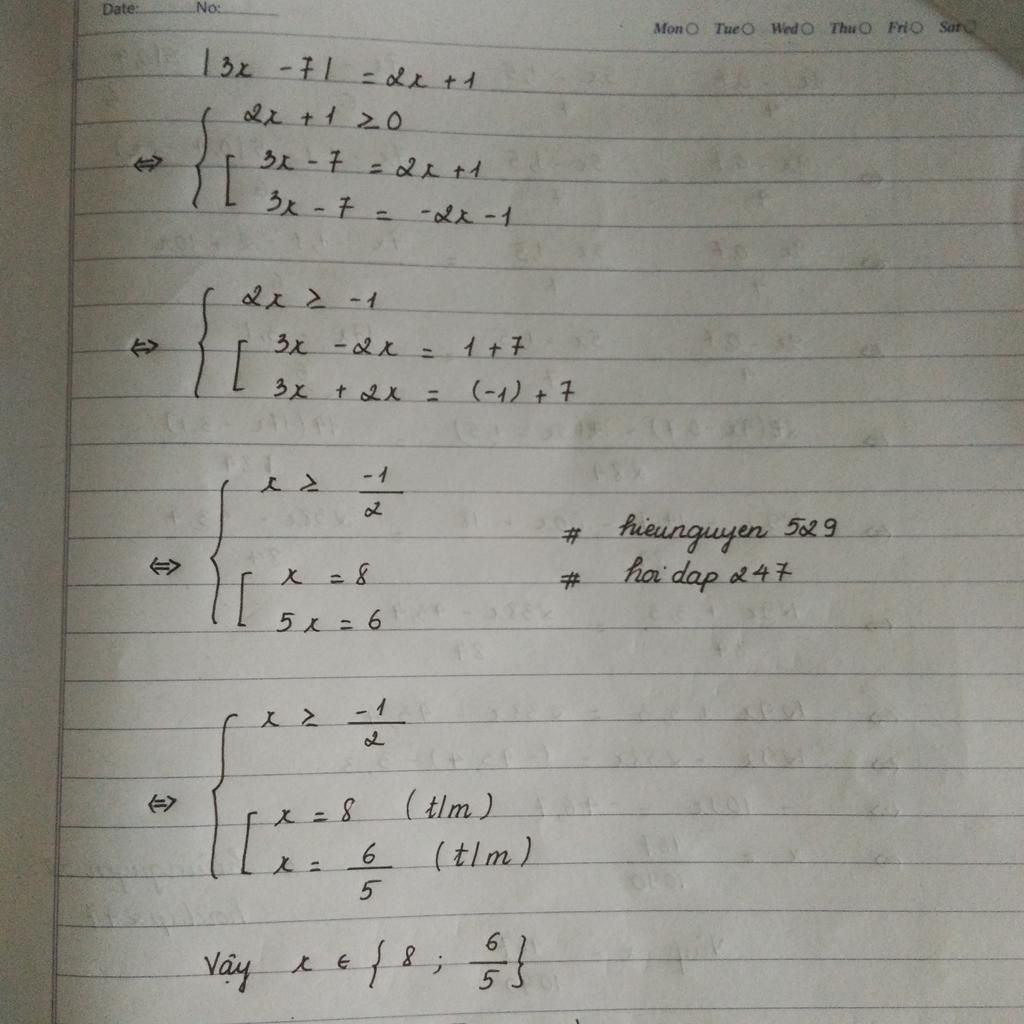 Date: No:
Mon Tue Wed Thu Fri Sat
|3x - 7| = 2x + 1
2x + 1 ≥ 0
⇔ 3x - 7 = 2x + 1
3x - 7 = -2x - 1
2x ≥ -1
⇔ 3x - 2x = 1 + 7
3x + 2x = (-1) + 7
x ≥ -1/2
# hieunguyen 529
⇔ x = 8 # hoidap 247
5x = 6
x ≥ -1/2
⇔ x = 8 (t/m)
x = 6/5 (t/m)
Vậy x ∈ {8 ; 6/5}